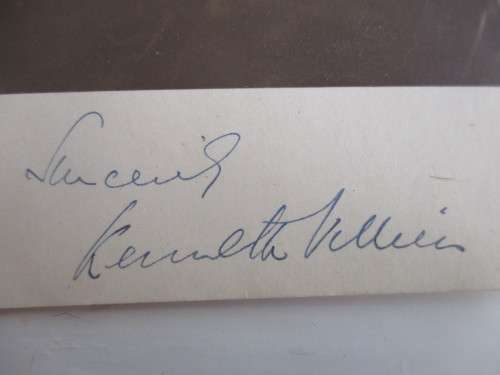 Sincerely
Kenneth Villiers